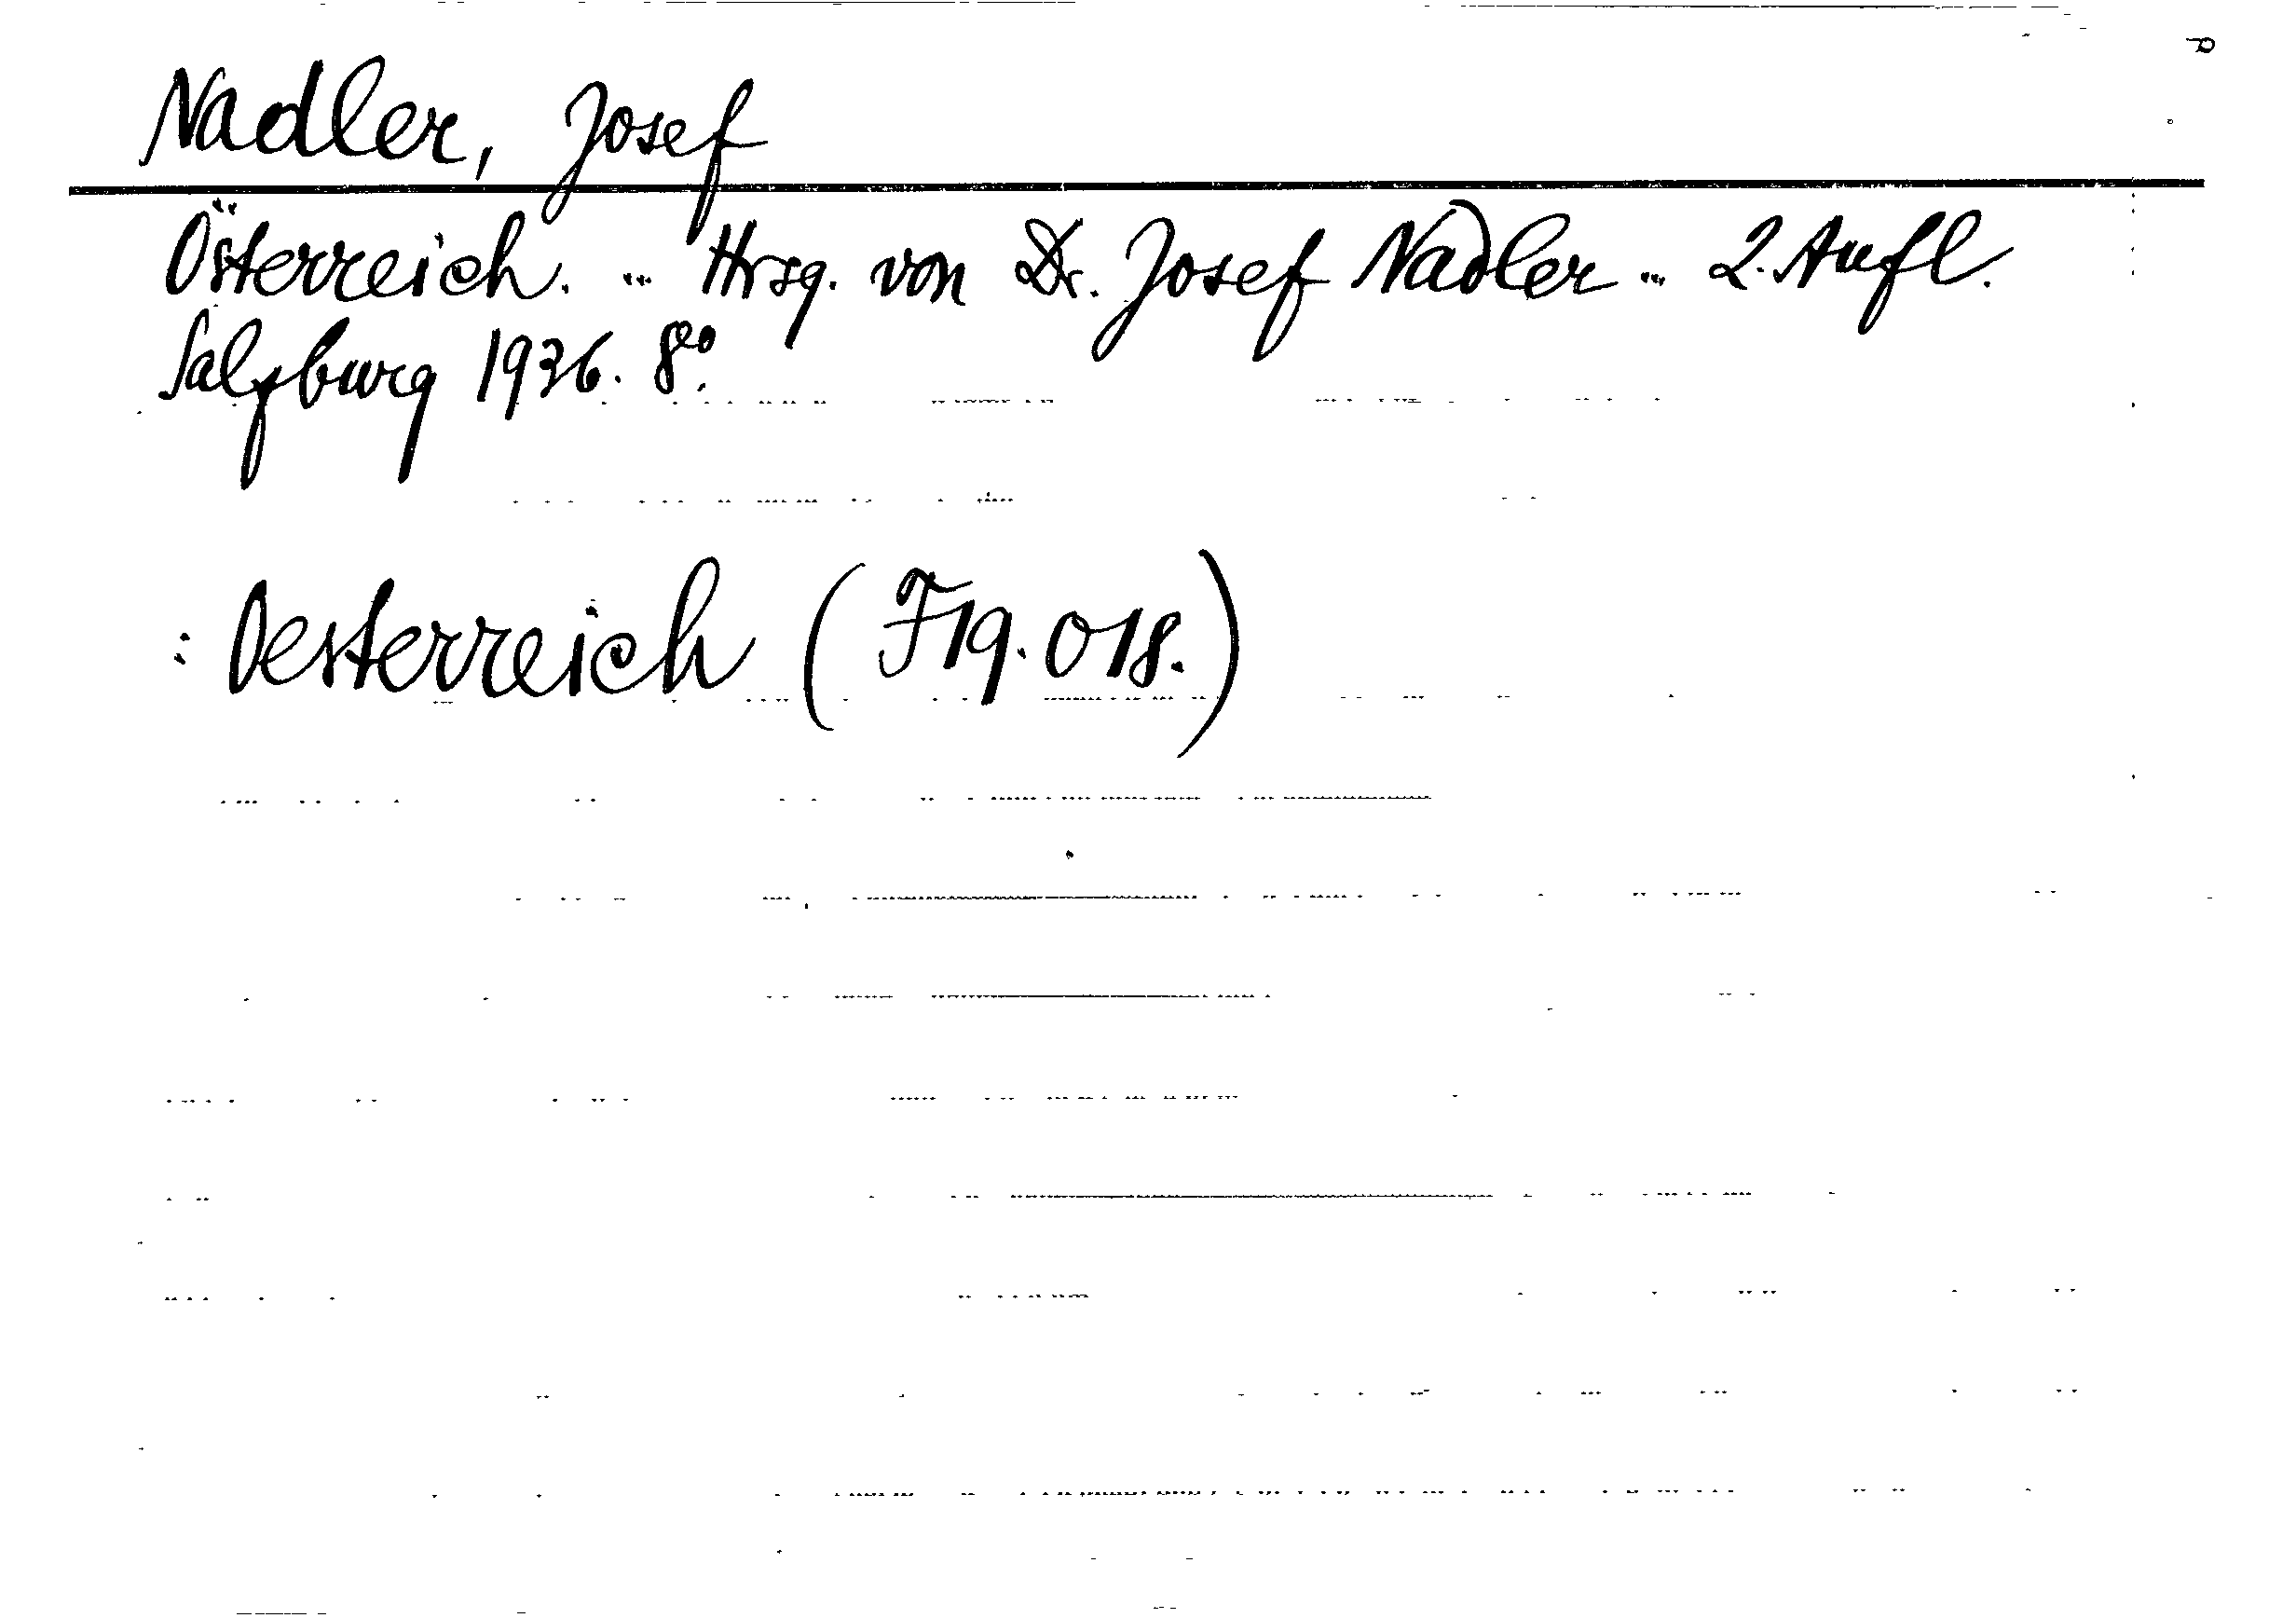 Nadler, Josef
Österreich. ... Hrsg. von Dr. Josef Nadler ... 2. Aufl.
Salzburg 1936. 8°.
: Oesterreich (F19.018.)